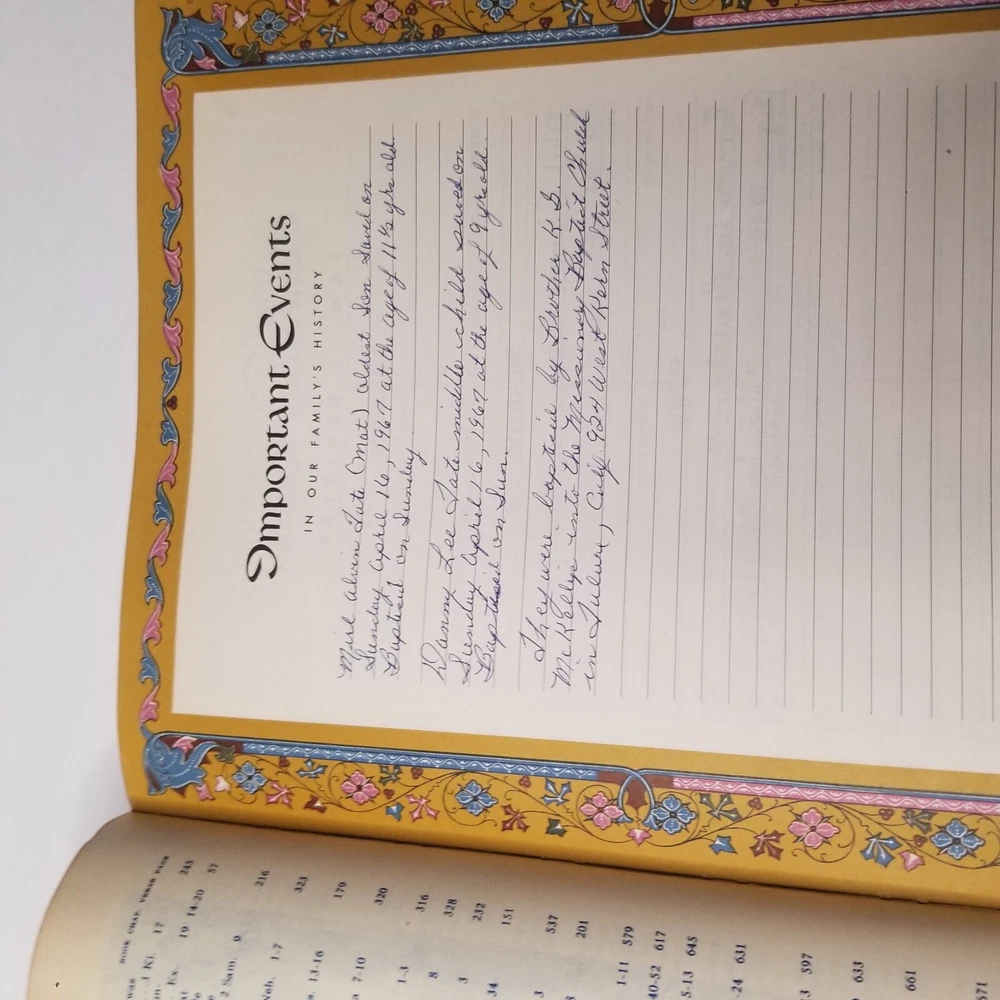 Important Events
IN OUR FAMILY'S HISTORY
Alvin Tate (Mat) oldest Son Saved on
Sunday April 16, 1967 at the age of 11½ yrs old.
Baptised on Sunday.
Danny Lee Tate middle child saved on
Sunday April 16, 1967 at the age of 9 yrs old.
Baptised on Sun.
They were baptised by Brother K.D.
McKellips into the Missionary Baptist Church
in Tulare, Calif 924 West Kern Street.
BOOK CHAP. VERSE PAGE
1 Ki. 17 245
Ex. 19 14-20 57
2 Sam. 9
216
Neh. 1-7 323
13-16 179
7-10 320
1-3 316
8 328
3 232
34 151
3 537
8 201
1-11 579
40-52 617
5-13 645
-24 631
3 597
633
661
671